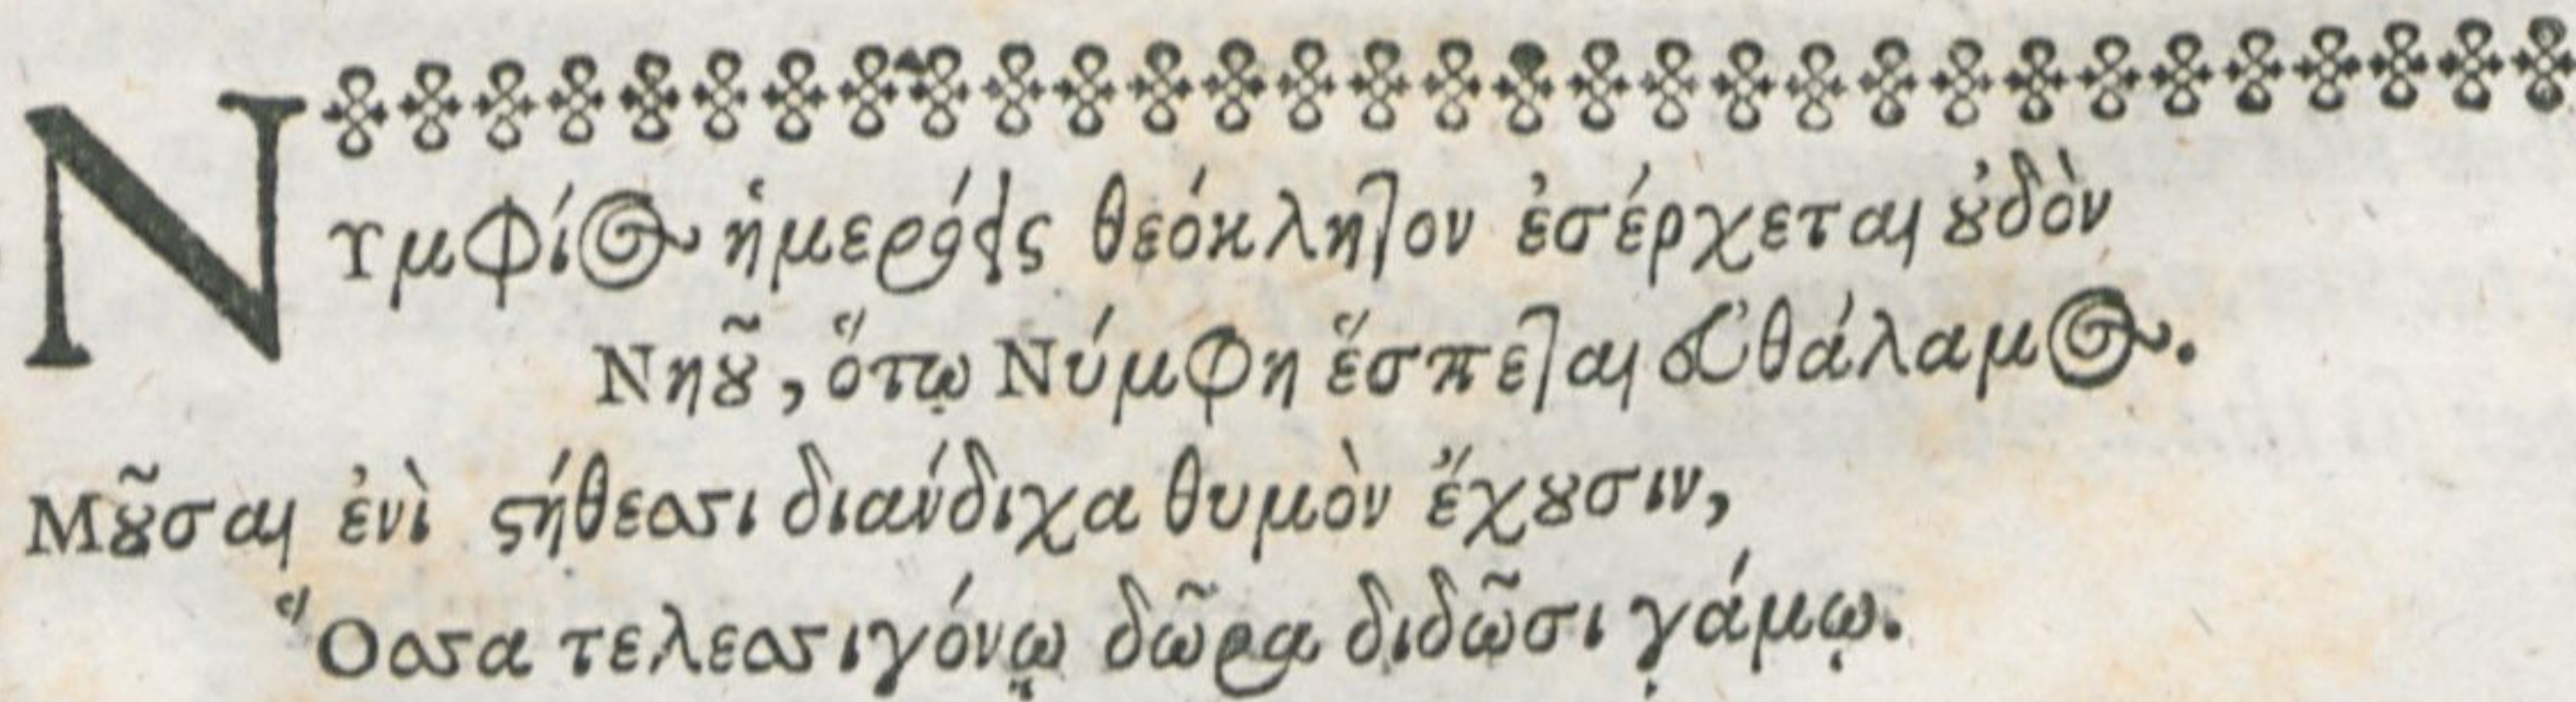 Νυμφίος ἡμερόεις θεόκλητον ἐσέρχεται οὐδὸν
Νηοῦ, ὅτῳ Νύμφη ἕσπεται εὐθάλαμος.
Μοῦσαι ἐνὶ στήθεσσι διάνδιχα θυμὸν ἔχουσιν,
Ὅσσα τελεσσιγόνῳ δῶρα διδῶσι γάμῳ.